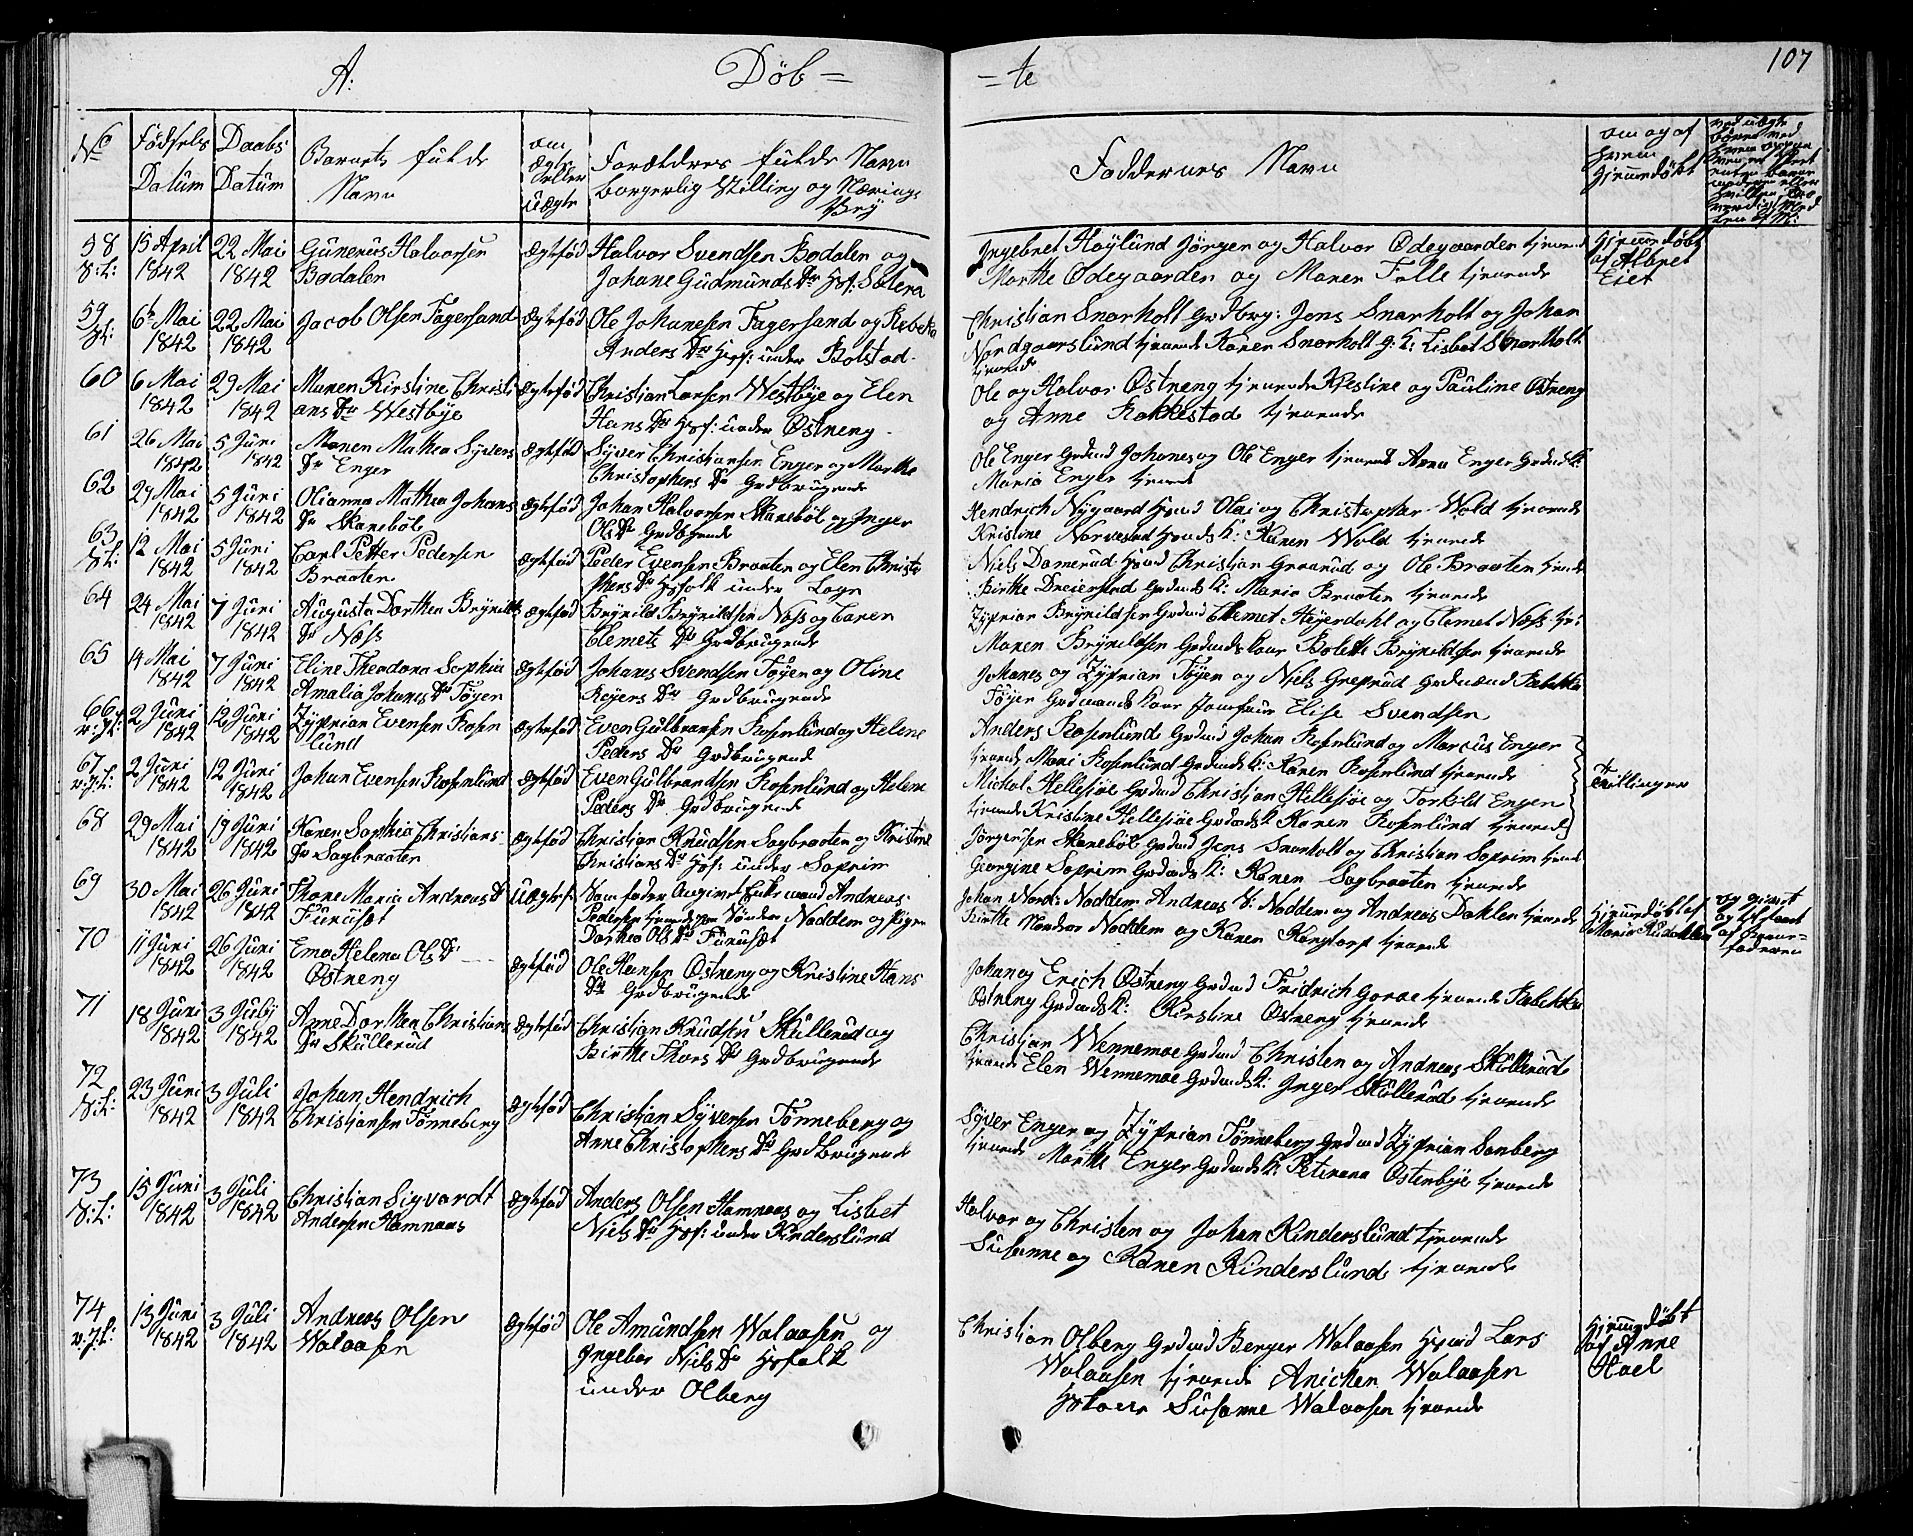 A: Döb =
= te 107
No Födsels Datum
Daabs Datum
Barnets fulde Navn
om Ægte eller uægte
Forældres fulde Navn borgerlig Stilling og Nærings Vey
Faddernes Navn
om og af hvem hjemmedöbt
58 15 April 1842 22 Mai 1842 Gunerius Halvorsen Bodalen Ægtefød Halvor Svendsen Bodalen og Johane Gudmunds Dr Hsf: Sætera
Ingebret Höylund Jörgen og Halvor Ödegaarden tjenende Marthe Ödegaarden og Maren Falle tjenende
Hjemmedöbt af Albret Eiet
59 6t Mai 1842 22 Mai 1842 Jacob Olsen Fagersand Ægtefød Ole Johanesen Fagersand og Rebeka Anders Dr Hsf: under Bolstad
Christian Snarholt Grdbrg: Jens Snarholt og Johan Nordgaarslund tjenende Karen Snarholt g: K: Lisbet Snarholt tjenende
60 6 Mai 1842 29 Mai 1842 Maren Kirstine Christians Dr Westbye Ægtefød Christian Larsen Westbye og Elen Hans Dr Hsf: under Östreng
Ole og Halvor Östreng tjenende Kjestine og Pauline Östreng og Anne Rakkestad tjenende
61 26 Mai 1842 5 Juni 1842 Maren Mathea Syvers Dr Enger Ægtefød Syver Christiansen Enger og Marthe Christophers Dr Grdbrugende
Ole Enger Grdmd Johanes og Ole Enger tjenende Anna Enger Grdmds K: Maria Enger tjenende
62 29 Mai 1842 5 Juni 1842 Olianna Mathea Johans Dr Skaneböl Ægtefød Johan Halvorsen Skaneböl og Inger Ols Dr Grdbrgende
Hendrich Nygaard Hsmd Olai og Christopher Wold tjenende Kristine Narvestad Hsmds K: Karen Wold tjenende
63 12 Mai 1842 5 Juni 1842 Carl Petter Pedersen Braaten Ægtefød Peder Evensen Braaten og Elen Christophers Dr Hsfolk under Løgn
Niels Damerud Hsmd Christian Graarud og Ole Braaten tjende Birthe Dreiersrud Grdmds K: Maria Braaten tjenende
64 24 Mai 1842 7 Juni 1842 Augusta Dorthea Brynilds Dr Næss Ægtefød Brynild Brynildsen Næss og Caren Clemets Dr Grdbrugende
Zyprian Brynildsen Grdmd Clemet Heyerdahl og Clemet Næss tje: Maren Brynildsen Grdmdskone Bolette Brynildsen tjenende
65 14 Mai 1842 7 Juni 1842 Eline Theodora Sophia Amalia Johanes Dr Töyen Ægtefød Johanes Svendsen Töyen og Oline Reyers Dr Grdbrugende
Johanes og Zyprian Töyen og Niels Greprud Grdmænd Rabekka Töyen Grdmandskone Jomfrue Elise Svendsen
66 2 Juni 1842 12 Juni 1842 Zyprian Evensen Rosenlund Ægtefød Even Gulbransen Rosenlund og Helene Peders Dr Grdbrugende
Anders Rosenlund Grdmd Johan Rosenlund og Marcus Enger tjenende Mari Rosenlund Grdmds K: Karen Rosenlund tjenende
67 2 Juni 1842 12 Juni 1842 Johan Evensen Rosenlund Ægtefød Even Gulbrandsen Rosenlund og Helene Peders Dr Grdbrugende
Michel Hellesjöe Grdmd Christian Hellesjöe og Torkild Engen tjenende Kristine Hellesjöe Grdmds K: Karen Rosenlund tjenende
Tvillinger
68 29 Mai 1842 19 Juni 1842 Karen Sophia Christians Dr Sagbraaten Ægtefød Christian Knudsen Sagbraaten og Kristine Christians Dr Hsf: under Soprim
Jörgensen Skaneböl Grdmd Jens Snarholt og Christian Soprim tjende Georgine Soprim Grdmds K: Karen Sagbraaten tjenende
69 30 Mai 1842 26 Juni 1842 Thone Maria Andreas Dr Furuset Uægtef: Som fader Angivet Enkemand Andreas Pedersen Noddem og Pigen Dorthea Ols Dr Furusæt
Johan Nord: Noddem Andreas S: Noddem og Andreas Daklen tjenende Birthe Nordre Noddem og Karen Kragtorp tjenende
Hjemmedöbt af Maria
70 11 Juni 1842 26 Juni 1842 Ema Helena Ols Dr Östreng Ægtefød Ole Hansen Östreng og Kristine Hans Dr Grdbrugende
Johan og Erich Östreng Grdmd Fridrich Goroe tjenende Rabekka Östreng Grdmds K: Kirstine Östreng tjenende
71 18 Juni 1842 3 July 1842 Anne Dorthea Christians Dr Skullerud Ægtefød Christian Knudsen Skullerud og Birthe Thors Dr Grdbrugende
Christian Wennemoe Grdmd Christen og Andreas Skullerud tjenende Elen Wennemoe Grdmds K: Inger Skullerud tjenende
72 23 Juni 1842 3 Juli 1842 Johan Hendrich Christiansen Tönneberg Ægtefød Christian Syversen Tönneberg og Anne Christophers Dr Grdbrugende
Syver Enger og Zyprian Tönneberg Grdmd Zyprian Sonberg tjenende Marthe Enger Grdmds K: Peterena Östenbye tjenende
73 15 Juni 1842 3 Juli 1842 Christian Sigvardt Andersen Hamnaas Ægtefød Anders Olsen Hamnaas og Lisbet Niels Dr Hsf: under Kinderslund
Halvor og Christen og Johan Kinderslund tjenende Susanne og Karen Kinderslund tjenende
74 13 Juni 1842 3 Juli 1842 Andreas Olsen Walaasen Ægtefød Ole Amundsen Walaasen og Ingebor Niels Dr Hsfolk under Olberg
Christian Olberg Grdmd Berger Walaasen Hsmd Lars Walaasen tjenende Anichen Walaasen Hskone Susanne Walaasen tjenende
Hjemmedöbt af Anne Hoel